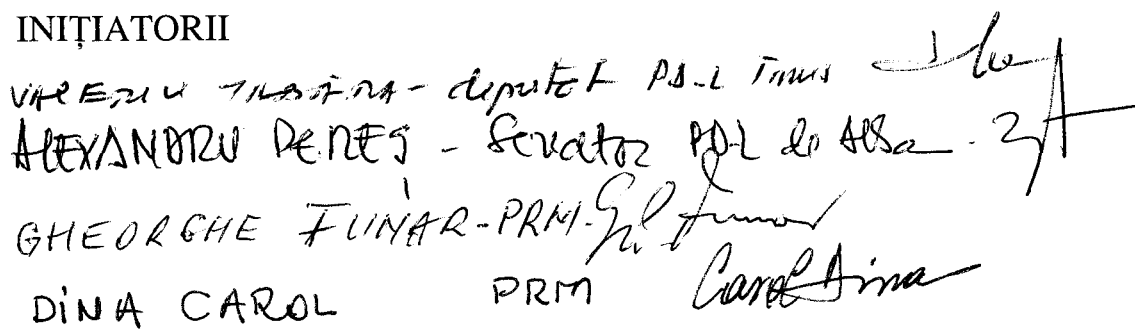 INIȚIATORII
VALERIU TABĂRA - deputat PD-L Timis
ALEXANDRU PEREȘ - Senator PD-L de Alba -
GHEORGHE FUNAR - PRM - Gh. Funar
DINA CAROL PRM Carol Dina